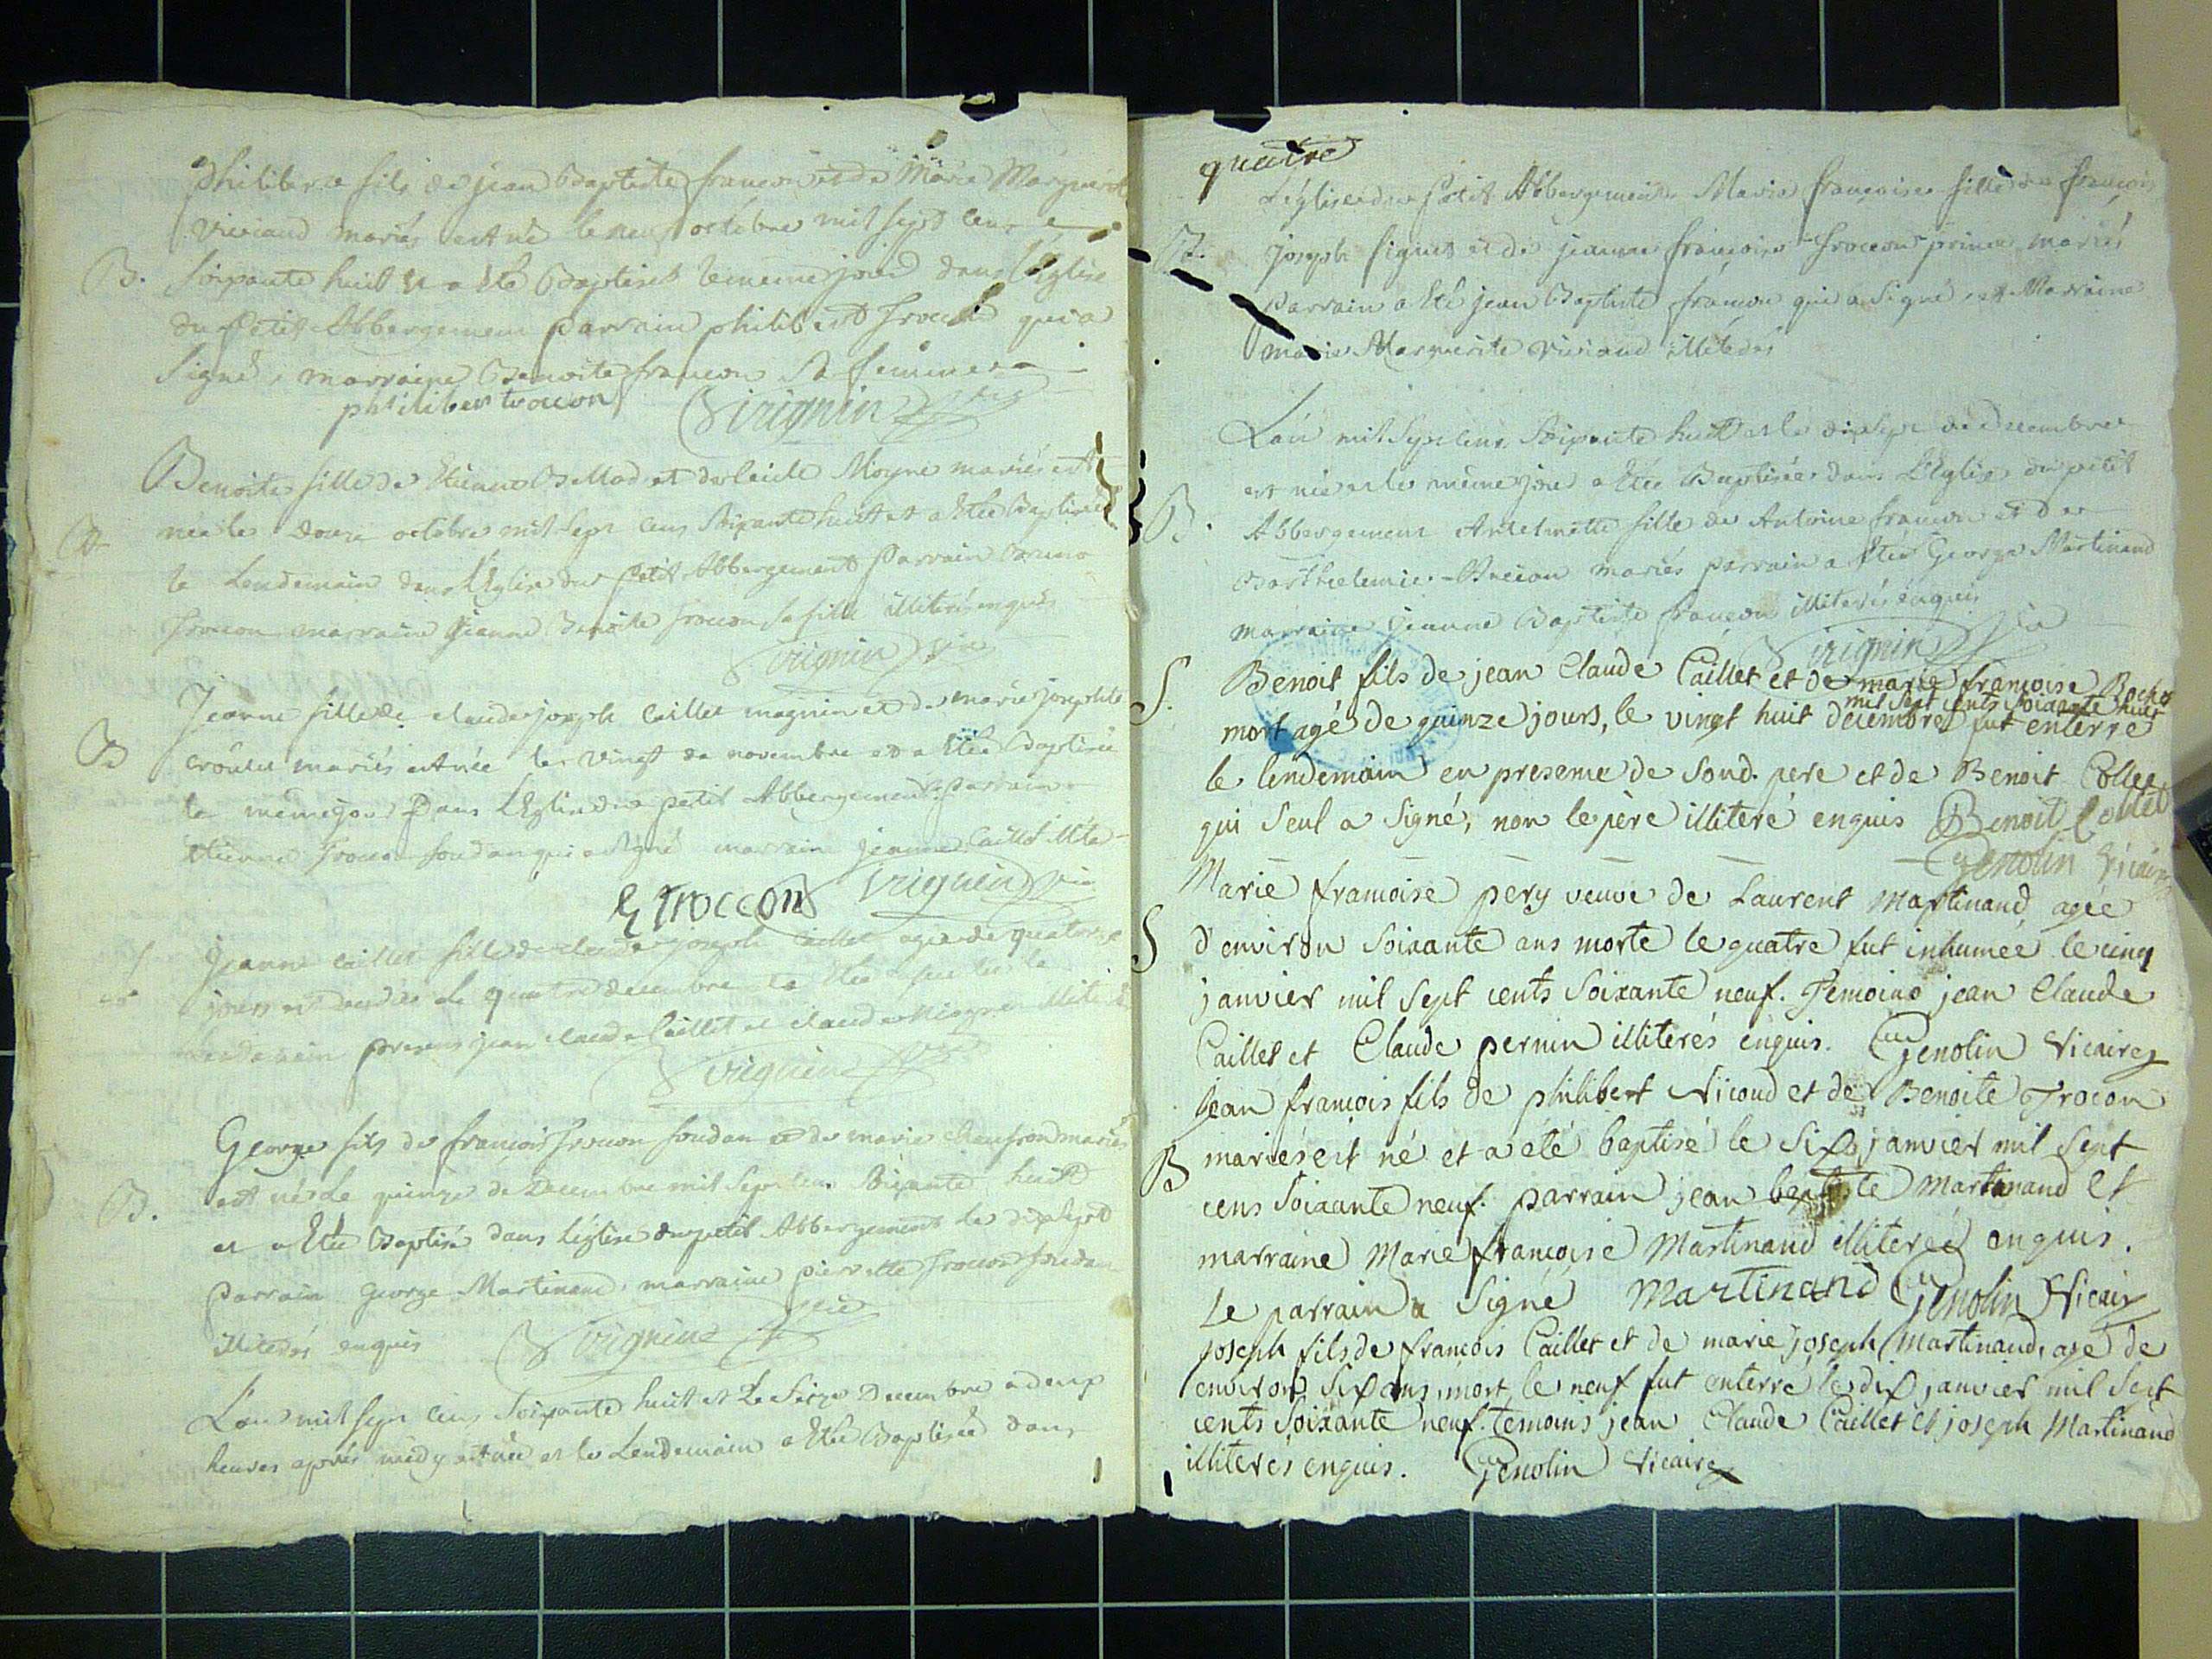 philiberte fils de jean Baptiste francon et de Marie Marguerite
viviand mariés est né le neuf octobre mil sept cens
B. soixante huit et a eté Baptisé le meme jour dans l'Eglise
du petit Abbergement parrain philibert trocon qui a
signé, marraine Benoite francon sa femme
philiber trocon Virignin vic
Benoite fille de Etienne Bellod et de Moyne mariés est
B née le douze octobre mil sept cens soixante huit et a eté Baptisée
le Lendemain dans l'Eglise du petit Abbergement parrain
trocon marraine jeanne Benoite trocon sa fille illiterés enquis
Virignin vic
Jeanne fille de claude joseph Caillet magnin et de marie josephte
B mariés est née le vingt de novembre et a eté Baptisée
le même jour Dans L'Eglise du petit Abbergement parrain
étienne trocon soudan qui a signé marraine jeanne Caillet
E troccon Virignin vic
S jeanne caillet fille de claude joseph caillet agée de quatorze
jours est decedée le quatre decembre et a eté le
lendemain presens jean claude Caillet et claude Moyne
Virignin vic
George fils de francois trocon soudan et de marie mariés
est né le quinze de Decembre mil sept cens soixante huit
B. et a eté Baptisé dans l'église du petit Abbergement le dix sept
parrain George Martinand, marraine pierrette trocon soudan
illiterés enquis Virignin vic
L'an mil sept cens soixante huit et le seize Decembre a deux
heures après midy est née et le Lendemain a eté Baptisée dans
quatre
L'église du petit Abbergement Marie françoise fille de françois
B. joseph figuet et de jeanne françoise trocon prince mariés
parrain a eté jean Baptiste francon qui a signé, et Marraine
marie Marguerite viviand
L'an mil sept cens soixante huit et le dix sept de decembre
est née et le même jour a eté Baptisée dans L'Eglise du petit
B. Abbergement Antelmette fille de Antoine francon et de
Barthelemie mariés parrain a eté George Martinand
marraine jeanne Baptiste francon illiterés enquis
Virignin vic
S. Benoit fils de jean Claude Caillet et de marie françoise Rochet
mil sept cents soixante huit
mort agé de quinze jours, le vingt huit decembre fut enterré
le lendemain en presence de soud. pere et de Benoit Collet
qui seul a signé, non le père illiteré enquis Benoit Collet
Genolin Vicaire
Marie françoise pery veuve de Laurent Martinand agée
S d'environ soixante ans morte le quatre fut inhumée le cinq
janvier mil sept cents soixante neuf. Temoins jean Claude
Caillet et Claude pernin illiterés enquis. Genolin Vicaire
Jean francois fils de philibert Nicoud et de Benoite Trocon
B mariés est né et a été baptisé le six janvier mil sept
cens soixante neuf. parrain jean baptiste martinand et
marraine Marie françoise Martinand illiterée enquis.
Le parrain a signé Martinand Genolin Vicaire
joseph fils de francois Caillet et de marie joseph Martinand, agé de
environ six ans, mort le neuf fut enterré le dix janvier mil sept
cents soixante neuf. temoins jean Claude Caillet et joseph Martinand
illiterés enquis. Genolin Vicaire